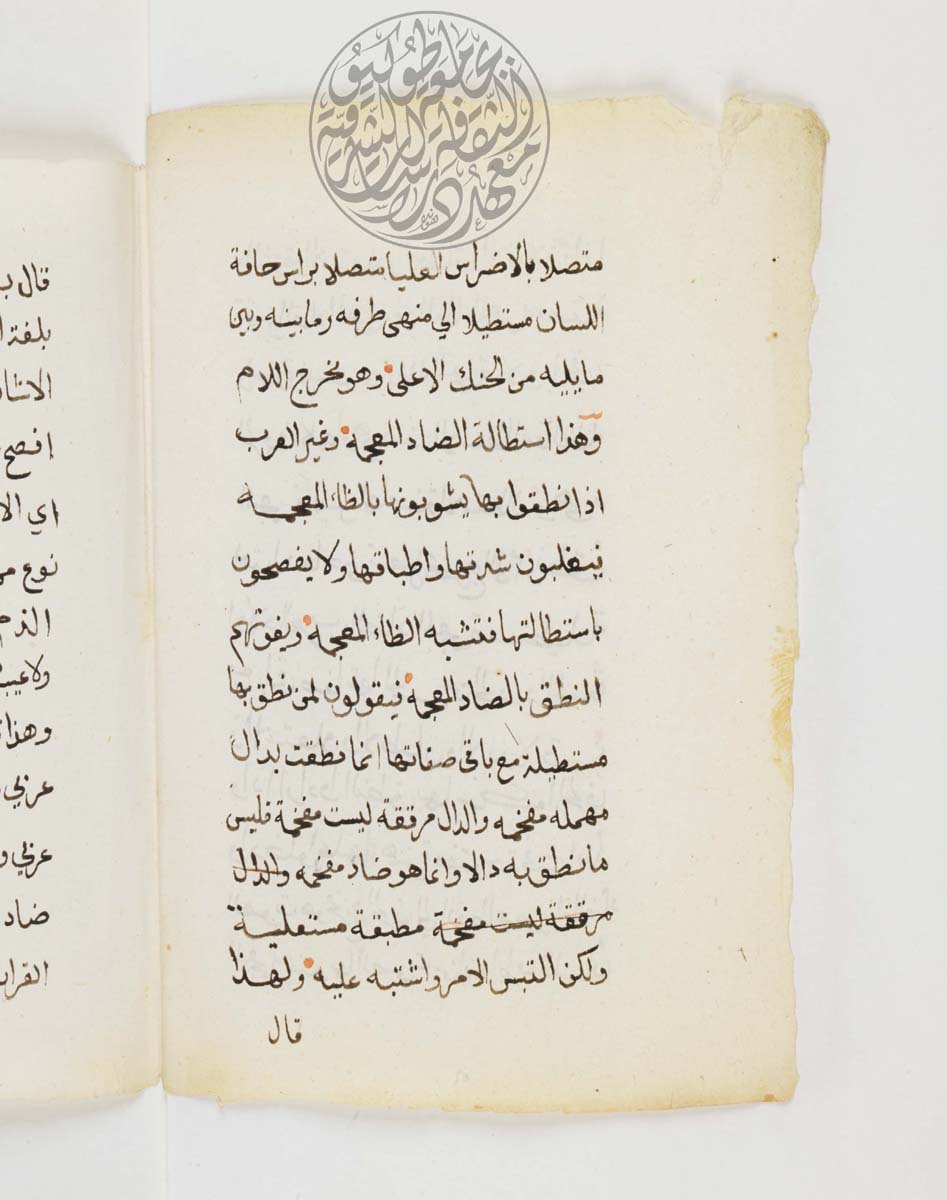 متصلا بالاضراس العليا متصلا براس حافة
اللسان مستطيلا الي منهى طرفه وما بينه وبين
ما يليه من الحنك الاعلى وهو مخرج اللام
وهذا استطالة الضاد المعجمة وغير العرب
اذا نطقوا بها يشوبونها بالظاء المعجمه
فيغلبون شدتها واطباقها ولا يفصحون
باستطالتها فتشبه الظاء المعجمة ويفوتهم
النطق بالضاد المعجمة فيقولون لمن نطق بها
مستطيلة مع باقي صفاتها انما نطقت بدال
مهمله مفخمه والدال مرققة ليست مفخمة فليس
ما نطق به دالا وانما هو ضاد مفخمه والدال
مرققة ليست مفخمة مطبقة مستعلية
ولكن التبس الامر واشتبه عليه ولهذا
قال
قال
بلغة
افصح
اي
نوع
الذم
وهذا
عربي
عربي
ضاد